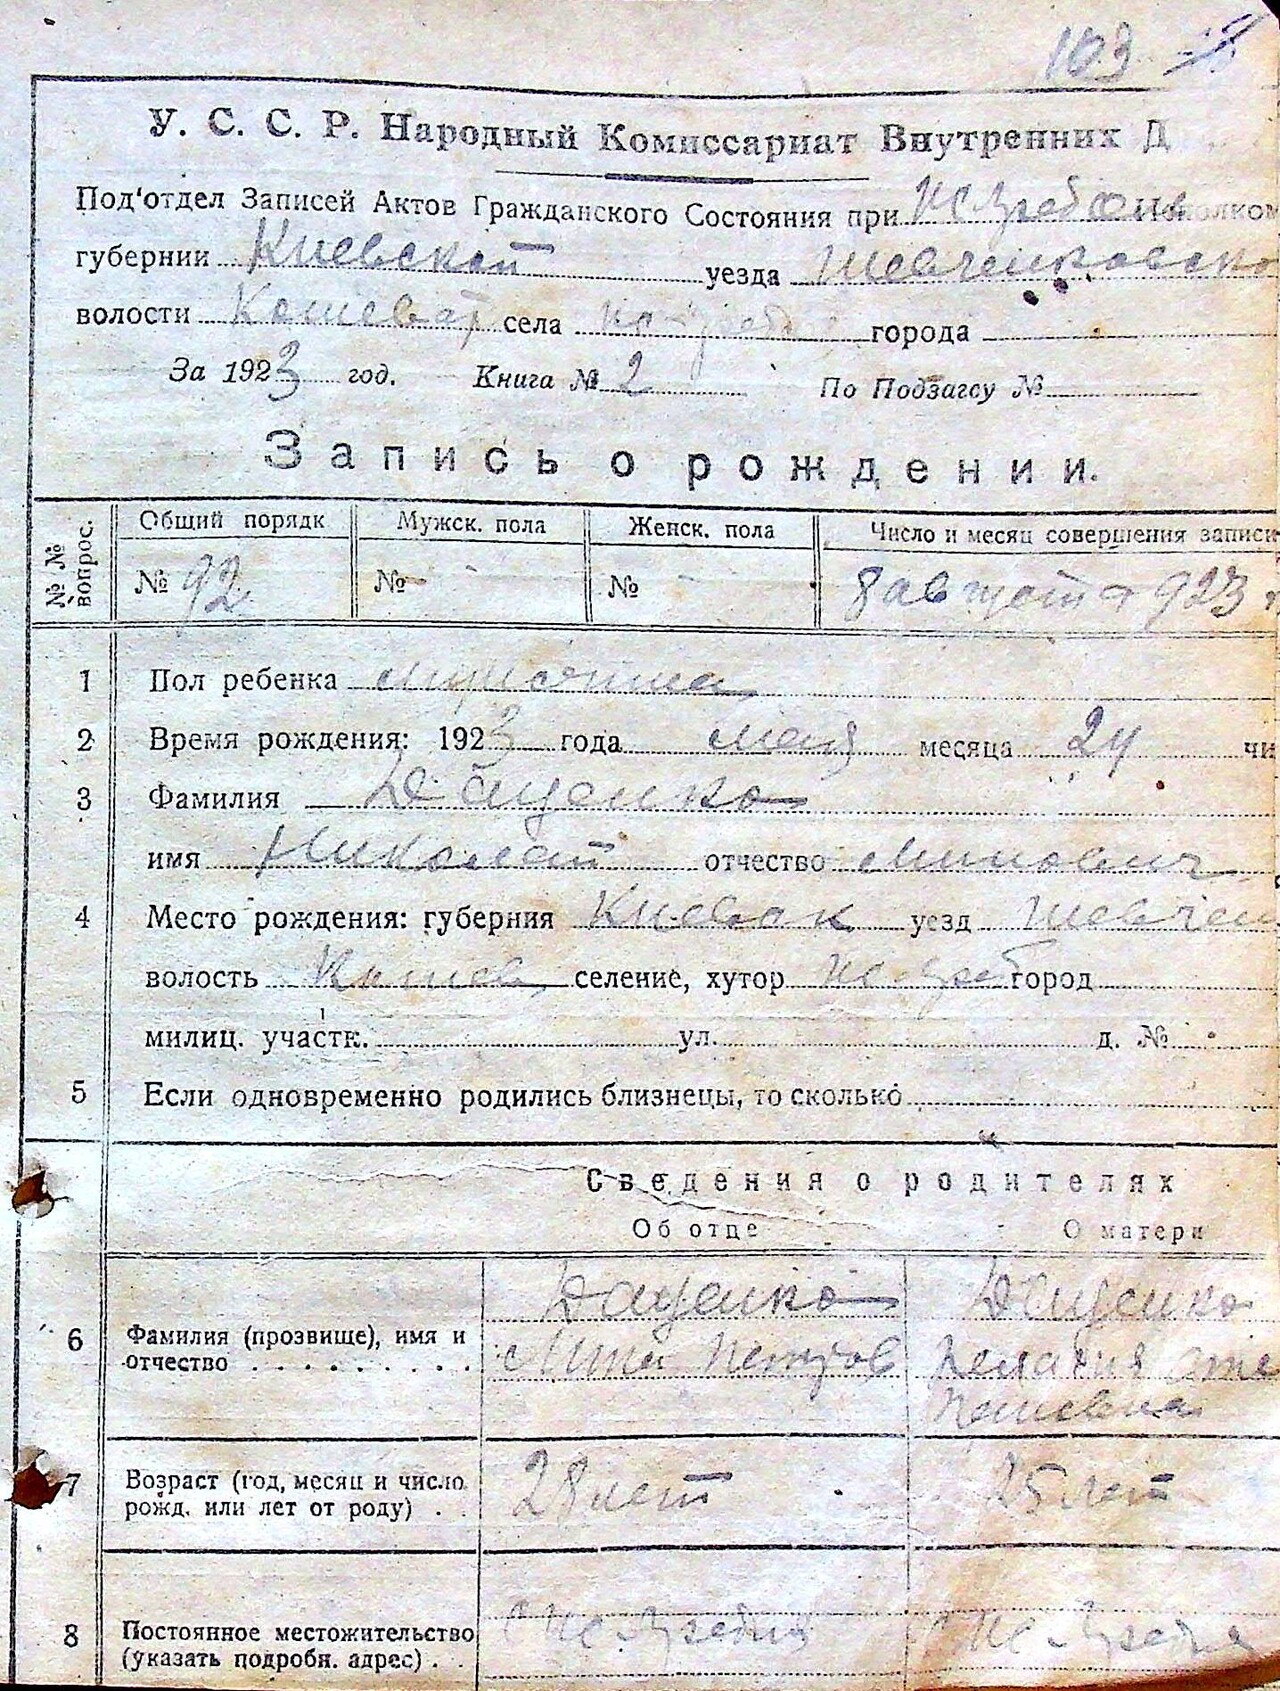 103
У. С. С. Р. Народный Комиссариат Внутренних Д
Под'отдел Записей Актов Гражданского Состояния при Исполком
губернии Киевской уезда Шевченковско
волости Кошеват села города
За 1923 год. Книга № 2 По Подзагсу №
Запись о рождении.
№ № вопрос. Общий порядк Мужск. пола Женск. пола Число и месяц совершения записи
№ 92 № № 8 августа 923
1 Пол ребенка
2 Время рождения: 1923 года мая месяца 24 чи
3 Фамилия Даценко
имя Николай отчество Минович
4 Место рождения: губерния Киевск уезд Шевчен
волость Кошев селение, хутор город
милиц. участк. ул. д. №
5 Если одновременно родились близнецы, то сколько
Сведения о родителях
Об отце О матери
Даценко Даценко
6 Фамилия (прозвище), имя и отчество . . . . . . . . . Мина Петров Пелагия
7 Возраст (год, месяц и число рожд. или лет от роду) . . 28 лет 25 лет
8 Постоянное местожительство (указать подробн. адрес) . .